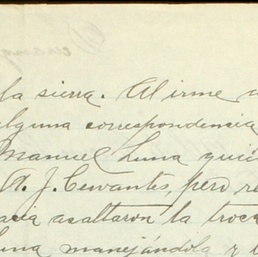 la sierra. Al irme a
alguna correspondencia
Manuel Luna quien
A. J. Cervantes, pero re
asaltaron la troca
Luna manejándola y